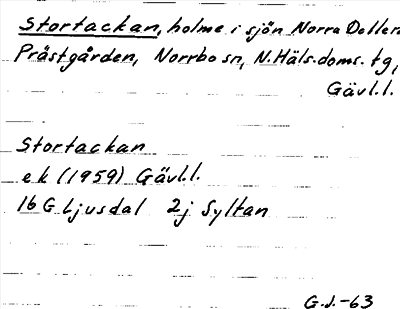 Stortackan, holme i sjön Norra Dellen
Prästgården, Norrbo sn, N.Häls.doms. tg,
Gävl.l.
Stortackan
ek (1959) Gävl.l.
16 G Ljusdal 2j Syltan
G.J.-63